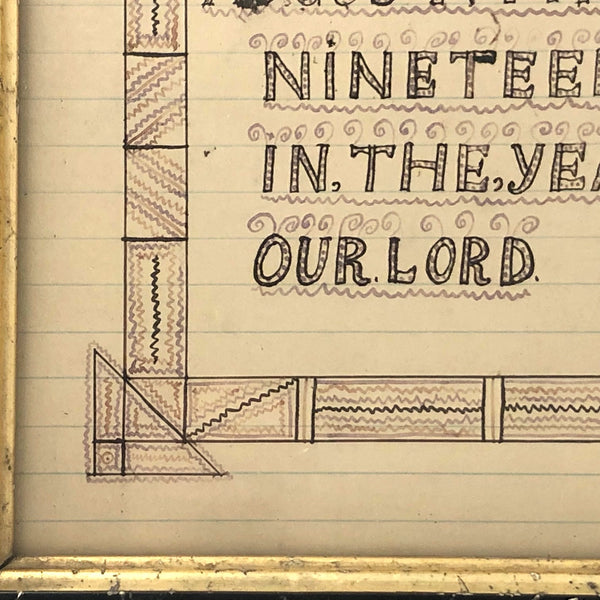 NINETEE
IN, THE, YEA
OUR. LORD.